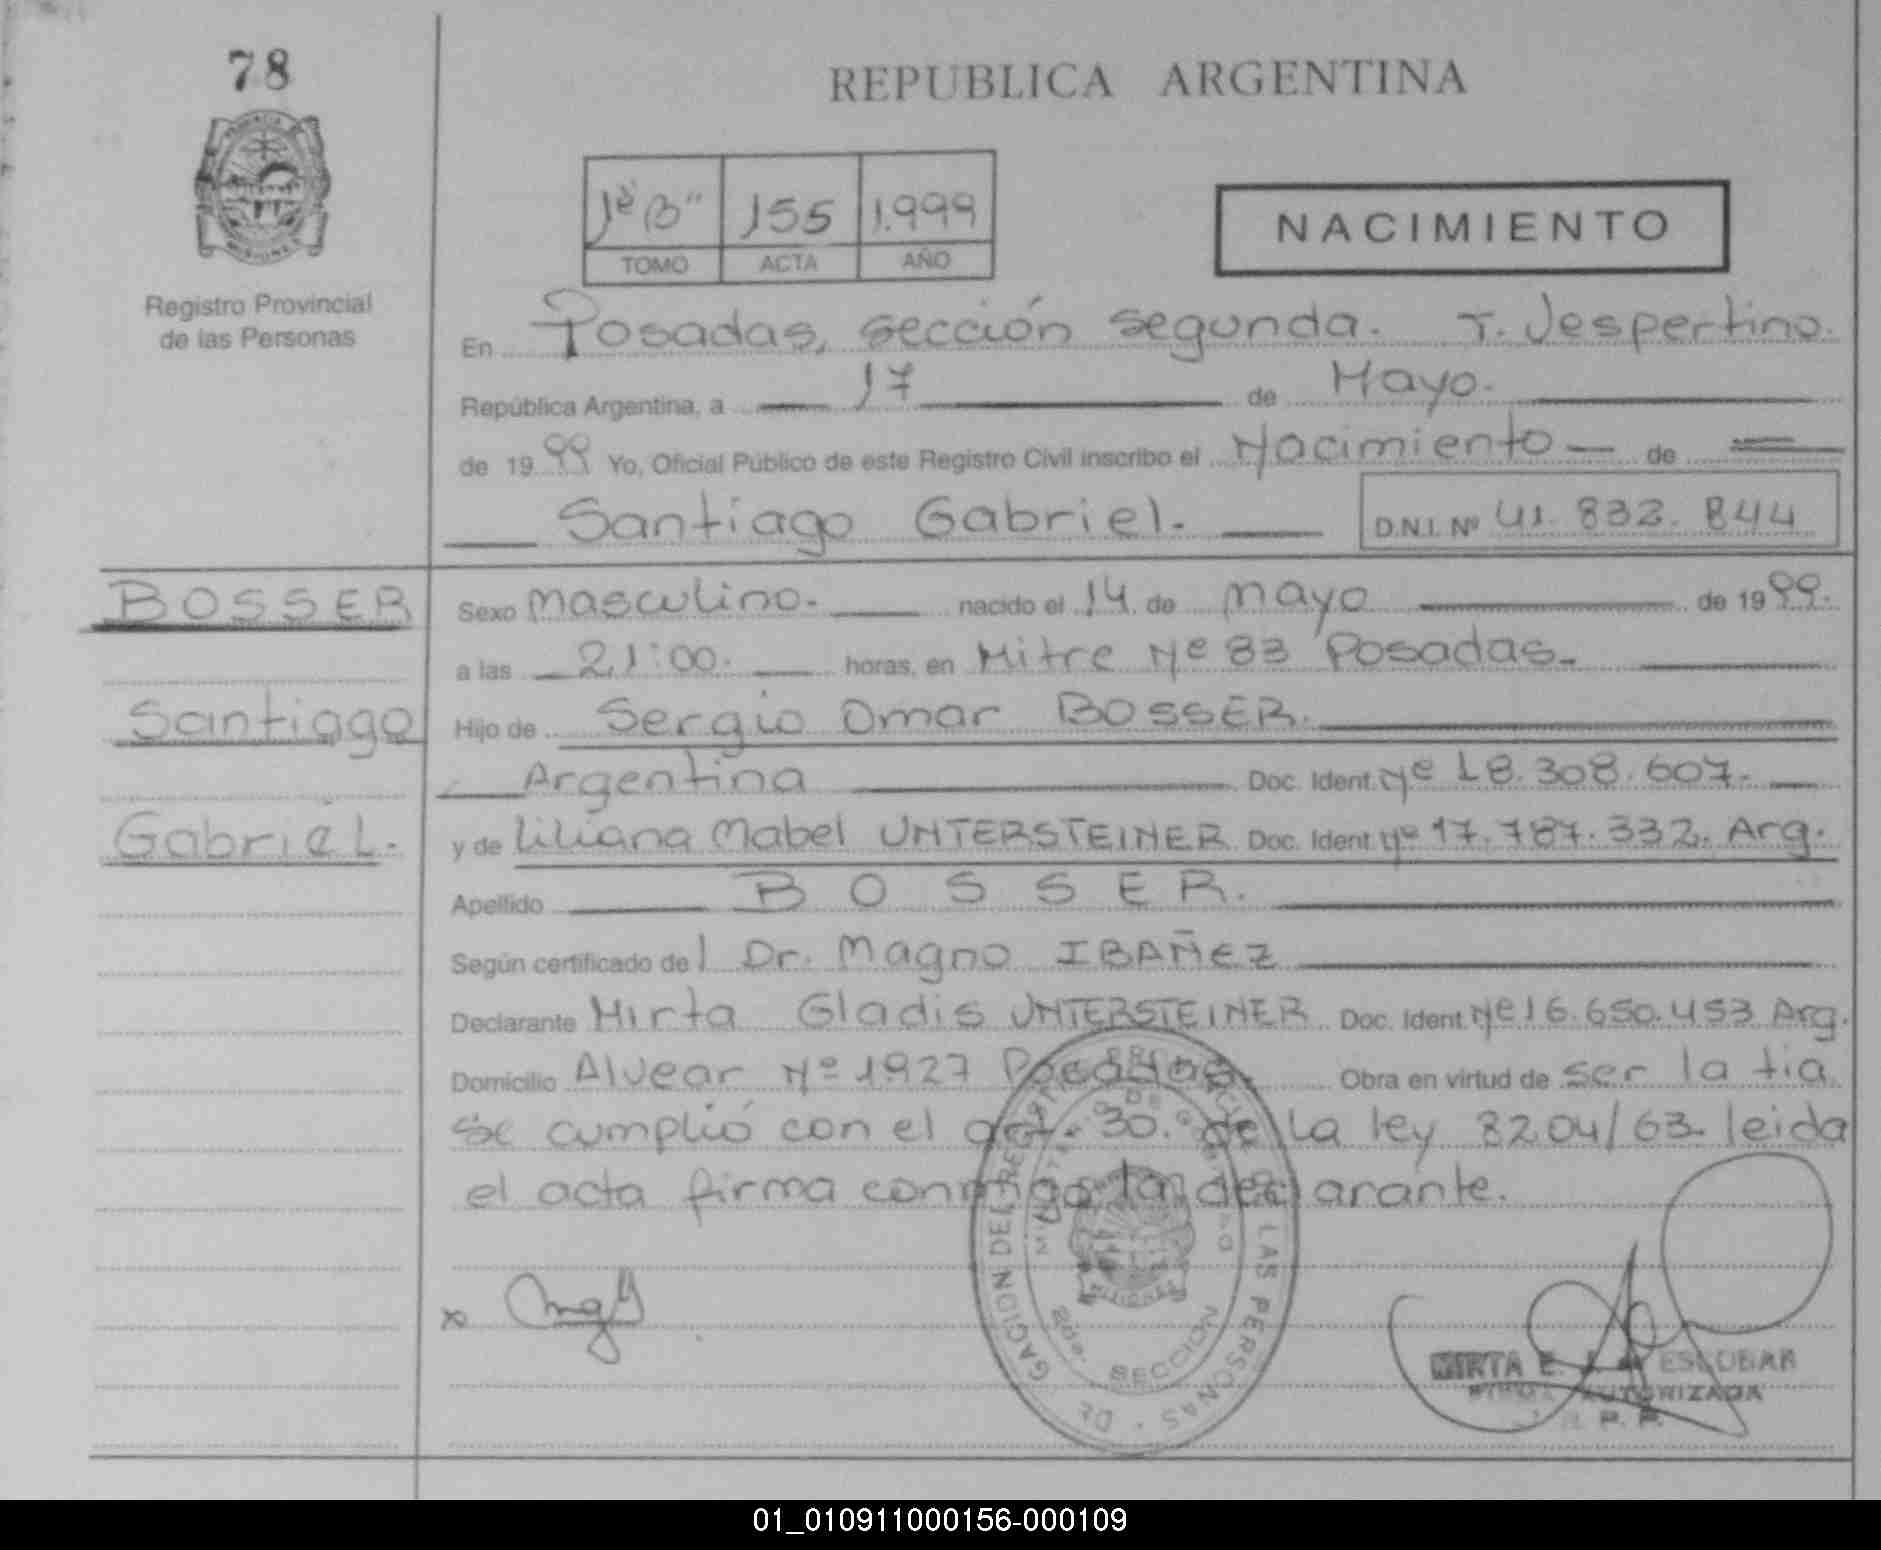 78
REPUBLICA ARGENTINA
1º "B" 155 1.999
TOMO ACTA AÑO
NACIMIENTO
Registro Provincial
de las Personas
En Posadas, sección segunda. T. Vespertino.
República Argentina, a 17 de Mayo.
de 1999 Yo, Oficial Público de este Registro Civil inscribo el Nacimiento de
Santiago Gabriel. D.N.I. Nº 41.832.844
BOSSER
Santiago
Gabriel.
Sexo masculino. nacido el 14 de mayo de 1999.
a las 21:00. horas, en Mitre Nº 83 Posadas.
Hijo de Sergio Omar BOSSER.
Argentina Doc. Ident. Nº 18.308.607.
y de Liliana Mabel UNTERSTEINER Doc. Ident. Nº 17.787.332. Arg.
Apellido BOSSER.
Según certificado del Dr. Magno IBAÑEZ
Declarante Mirta Gladis UNTERSTEINER Doc. Ident. Nº 16.650.453 Arg.
Domicilio Alvear Nº 1927 Posadas. Obra en virtud de ser la tia
se cumplió con el art. 30. de la ley 8204/63. leida
el acta firma conmigo la declarante.
x
2da. SECCION
MISIONES
LAS PERSONAS
MIRTA E. ESCOBAR
AUTORIZADA
01_010911000156-000109